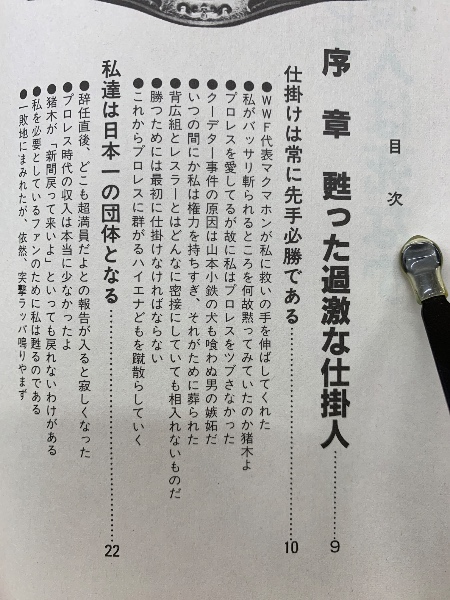 目次
序章 甦った過激な仕掛人……9
仕掛けは常に先手必勝である……10
●WWF代表マクマホンが私に救いの手を伸ばしてくれた
●私がバッサリ斬られるところを何故黙ってみていたのか猪木よ
●プロレスを愛してるが故に私はプロレスをツブさなかった
●クーデター事件の原因は山本小鉄の犬も喰わぬ男の嫉妬だ
●いつの間にか私は権力を持ちすぎ、それがために葬られた
●背広組とレスラーとはどんなに密接にしていても相入れないものだ
●勝つためには最初に仕掛けなければならない
●これからプロレスに群がるハイエナどもを蹴散らしていく
私達は日本一の団体となる……22
●辞任直後、どこも超満員だよとの報告が入ると寂しくなった
●プロレス時代の収入は本当に少なかったよ
●猪木が「新間戻って来いよ」といっても戻れないわけがある
●私を必要としているファンのために私は甦るのである
●一敗地にまみれたが、依然、突撃ラッパ鳴りやまず